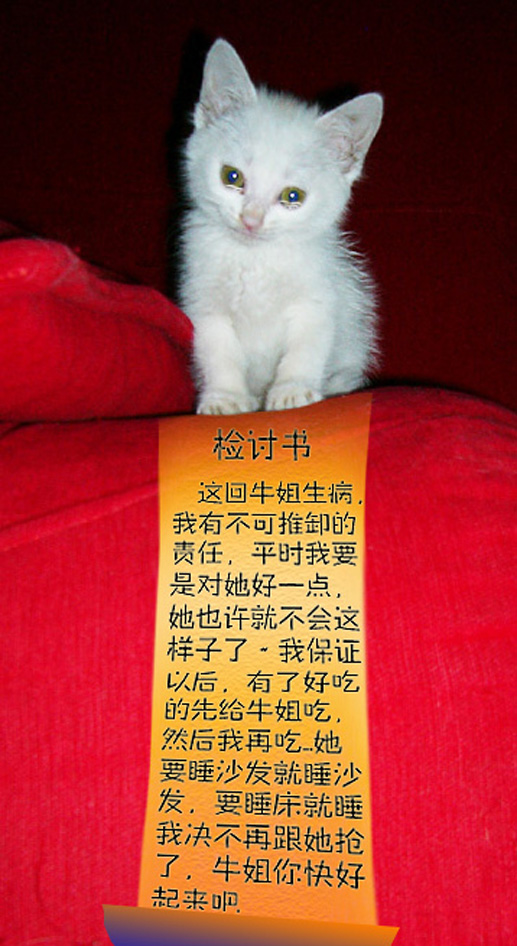 检讨书
这回牛姐生病,
我有不可推卸的
责任, 平时我要
是对她好一点,
她也许就不会这
样子了~我保证
以后, 有了好吃
的先给牛姐吃,
然后我再吃...她
要睡沙发就睡沙
发, 要睡床就睡
我决不再跟她抢
了, 牛姐你快好
起来吧